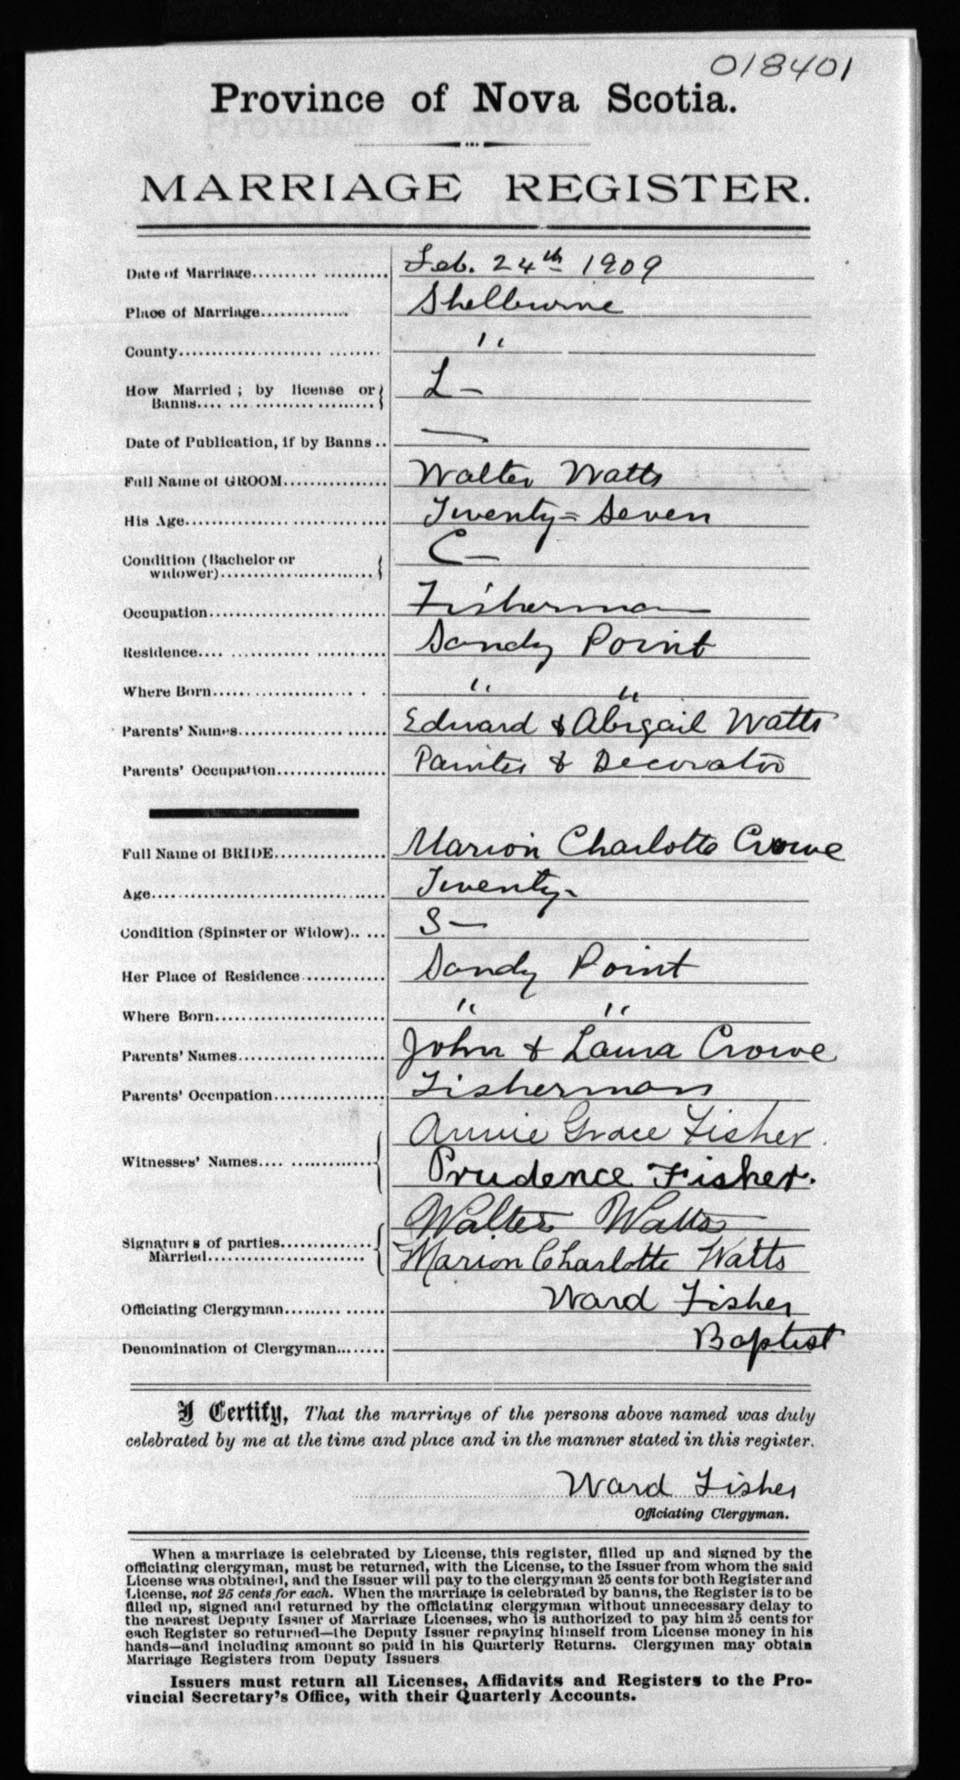 018401
Province of Nova Scotia.
MARRIAGE REGISTER.
Date of Marriage.......... .......... Feb. 24th 1909
Place of Marriage............. Shelburne
County...................... ........ " "
How Married ; by license or Banns.... ... .................. L—
Date of Publication, if by Banns .. —
Full Name of GROOM................ Walter Watts
His Age..................... .......... Twenty=Seven
Condition (Bachelor or widower)......................... C—
Occupation........................... Fisherman
Residence.... ............ .......... Sandy Point
Where Born...................... . . " "
Parents' Names................ ....... Edward & Abigail Watts
Parents' Occupation................. Painter & Decorator
Full Name of BRIDE................. Marion Charlotte Crowe
Age.................................... Twenty-
Condition (Spinster or Widow).. .... S—
Her Place of Residence ............. Sandy Point
Where Born.......................... " "
Parents' Names............... ........ John & Laura Crowe
Parents' Occupation................. Fisherman
Witnesses' Names.... ............... Annie Grace Fisher.
Prudence Fisher.
Signatures of parties Married...................... Walter Watts
Marion Charlotte Watts
Officiating Clergyman........ ....... Ward Fisher
Denomination of Clergyman........ Baptist
I Certify, That the marriage of the persons above named was duly
celebrated by me at the time and place and in the manner stated in this register.
Ward Fisher
Officiating Clergyman.
When a marriage is celebrated by License, this register, filled up and signed by the
officiating clergyman, must be returned, with the License, to the Issuer from whom the said
License was obtained, and the Issuer will pay to the clergyman 25 cents for both Register and
License, not 25 cents for each. When the marriage is celebrated by banns, the Register is to be
filled up, signed and returned by the officiating clergyman without unnecessary delay to
the nearest Deputy Issuer of Marriage Licenses, who is authorized to pay him 25 cents for
each Register so returned—the Deputy Issuer repaying himself from License money in his
hands—and including amount so paid in his Quarterly Returns. Clergymen may obtain
Marriage Registers from Deputy Issuers
Issuers must return all Licenses, Affidavits and Registers to the Pro-
vincial Secretary's Office, with their Quarterly Accounts.